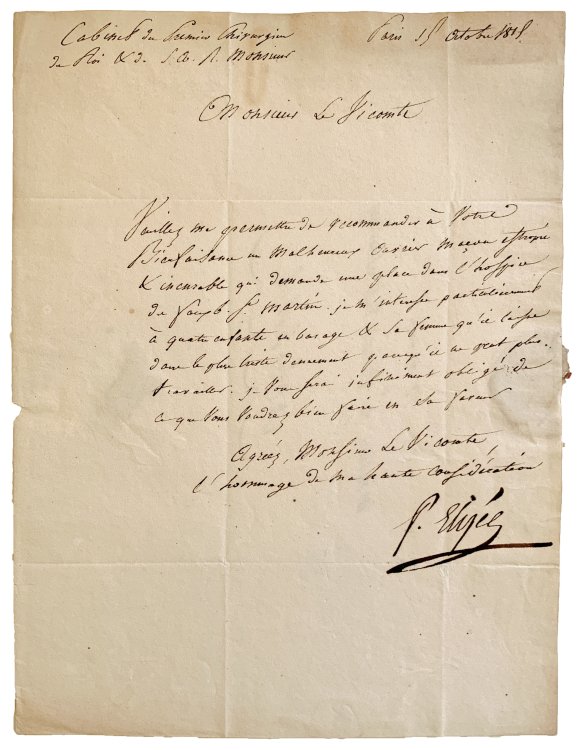 Cabinet du Premier Chirurgien
du Roi & de S. A. R. Monsieur
Paris 15 Octobre 1815
Monsieur Le Vicomte
Veuillez me permettre de recommander à Votre
Bienfaisance un Malheureux Ouvrier Maçon estropié
& incurable qui demande une place dans l'hospice
du Faubg St. Martin. je m'intéresse particulièrement
à quatre enfants en bas age & sa femme qu'il laisse
dans le plus triste denuement puisqu'il ne peut plus
travailler. je Vous serai infiniment obligé de
ce que Vous Voudrez bien faire en sa faveur
Agréez, Monsieur Le Vicomte,
l'hommage de ma haute considération
P. Elisée